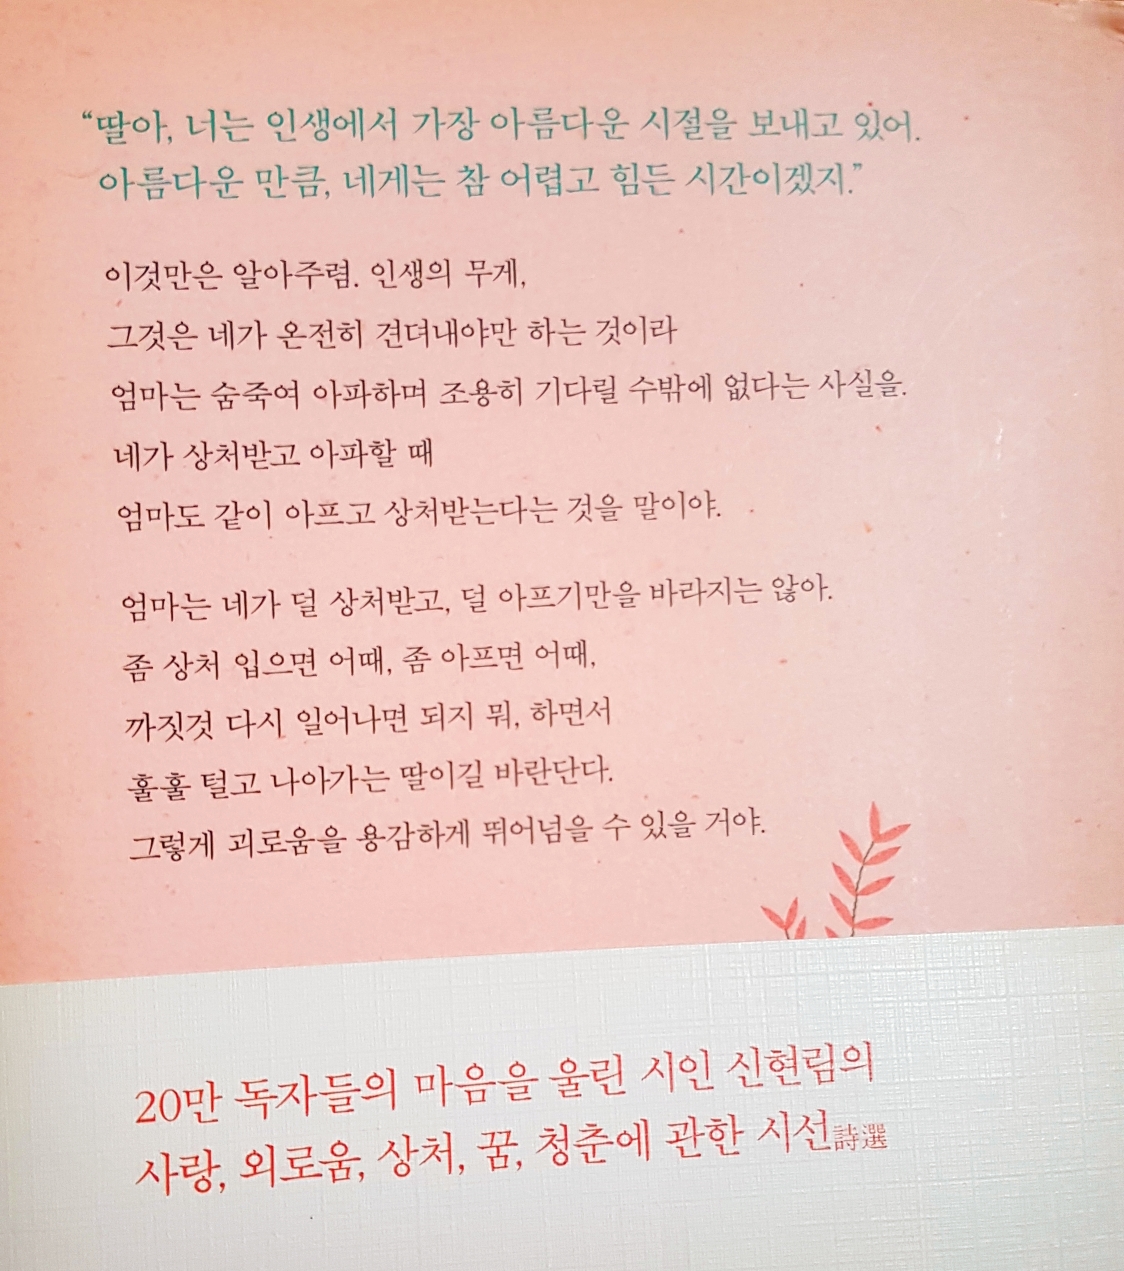 “딸아, 너는 인생에서 가장 아름다운 시절을 보내고 있어.
아름다운 만큼, 네게는 참 어렵고 힘든 시간이겠지.”
이것만은 알아주렴. 인생의 무게,
그것은 네가 온전히 견뎌내야만 하는 것이라
엄마는 숨죽여 아파하며 조용히 기다릴 수밖에 없다는 사실을.
네가 상처받고 아파할 때
엄마도 같이 아프고 상처받는다는 것을 말이야.
엄마는 네가 덜 상처받고, 덜 아프기만을 바라지는 않아.
좀 상처 입으면 어때, 좀 아프면 어때,
까짓것 다시 일어나면 되지 뭐, 하면서
훌훌 털고 나아가는 딸이길 바란단다.
그렇게 괴로움을 용감하게 뛰어넘을 수 있을 거야.
20만 독자들의 마음을 울린 시인 신현림의
사랑, 외로움, 상처, 꿈, 청춘에 관한 시선詩選